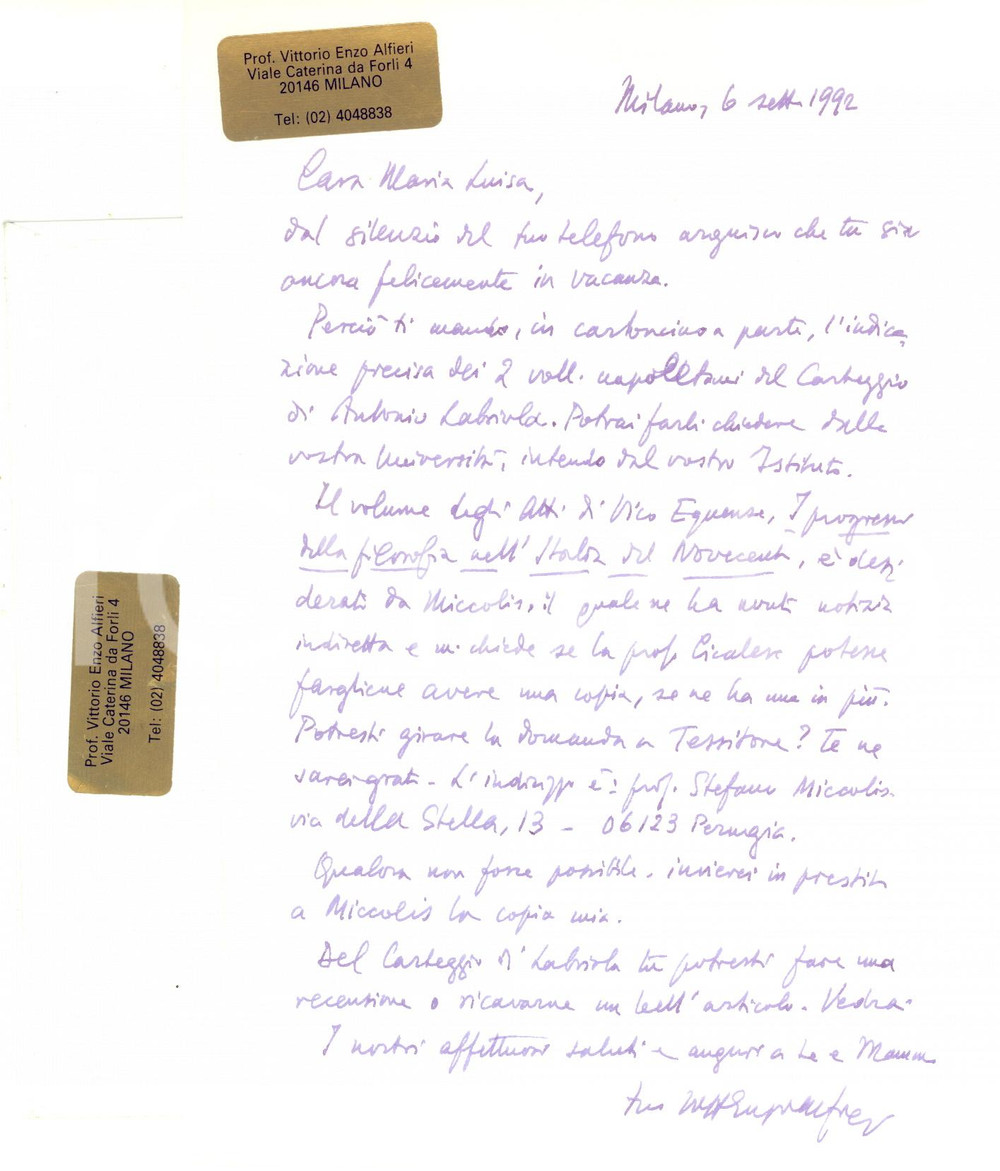 Prof. Vittorio Enzo Alfieri
Viale Caterina da Forlì 4
20146 MILANO
Tel: (02) 4048838
Milano, 6 sett. 1992
Cara Maria Luisa,
dal silenzio del tuo telefono arguisco che tu sia
ancora felicemente in vacanza.
Perciò ti mando, in cartoncino a parte, l'indica-
zione precisa dei 2 voll. napoletani del Carteggio
di Antonio Labriola. Potrai farli chiedere dalla
vostra Università, intendo dal vostro Istituto.
Il volume degli Atti di Vico Equense, I progressi
della filosofia nell'Italia del Novecento, è desi-
derato da Miccolis, il quale ne ha avuto notizia
indiretta e mi chiede se la prof. Cicalese potesse
fargliene avere una copia, se ne ha una in più.
Potresti girare la domanda a Tessitore? Te ne
sarei grato - L'indirizzo è: prof. Stefano Miccolis.
via della Stella, 13 - 06123 Perugia.
Qualora non fosse possibile, invierei in prestito
a Miccolis la copia mia.
Del Carteggio di Labriola tu potresti fare una
recensione o ricavarne un bell'articolo. Vedrai.
I nostri affettuosi saluti e auguri a te e Mamma
tuo
Prof. Vittorio Enzo Alfieri
Viale Caterina da Forlì 4
20146 MILANO
Tel: (02) 4048838